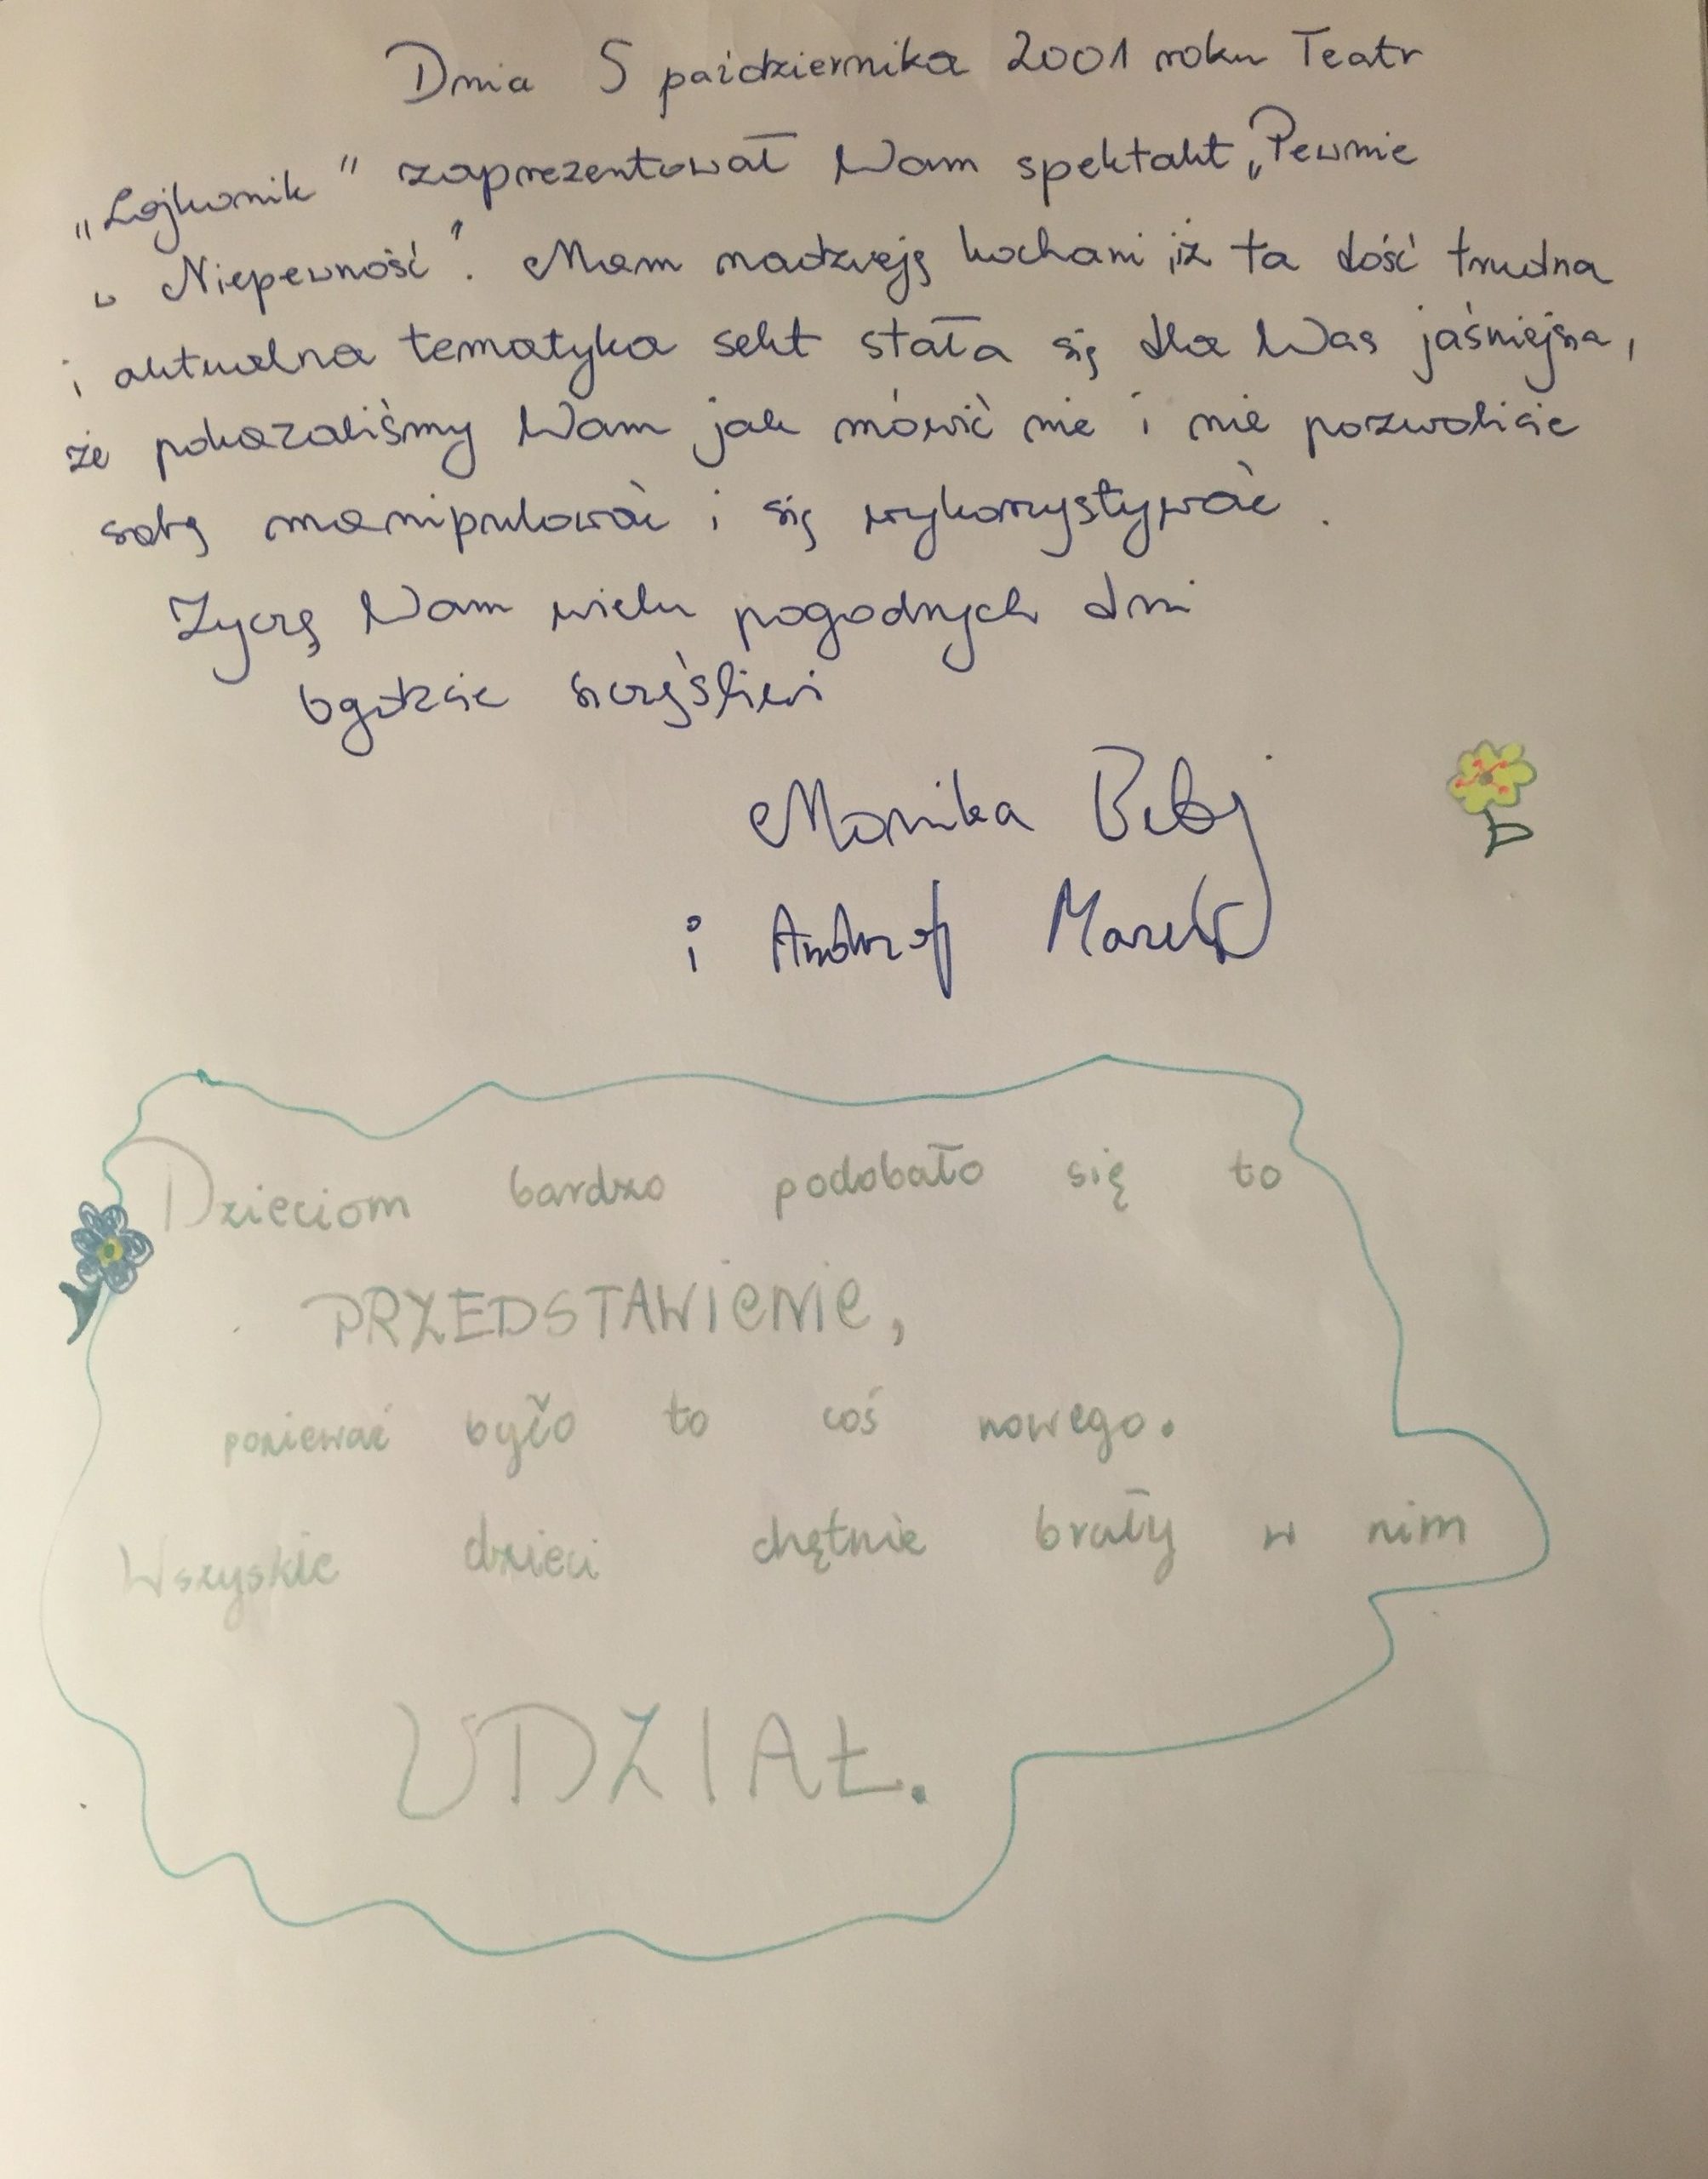 Dnia 5 października 2001 roku Teatr
„Lajkonik" zaprezentował Wam spektakl „Pewnie
w Niepewność". Mam nadzieję kochani, iż ta dość trudna
i aktualna tematyka sekt stała się dla Was jaśniejsza,
że pokazaliśmy Wam jak mówić nie i nie pozwolicie
sobą manipulować i się wykorzystywać.
Życzę Wam wielu pogodnych dni
bądźcie szczęśliwi
Monika
i Andrzej
Dzieciom bardzo podobało się to
PRZEDSTAWIENIE,
poniewać było to coś nowego.
Wszyskie dzieci chętnie brały w nim
UDZIAŁ.